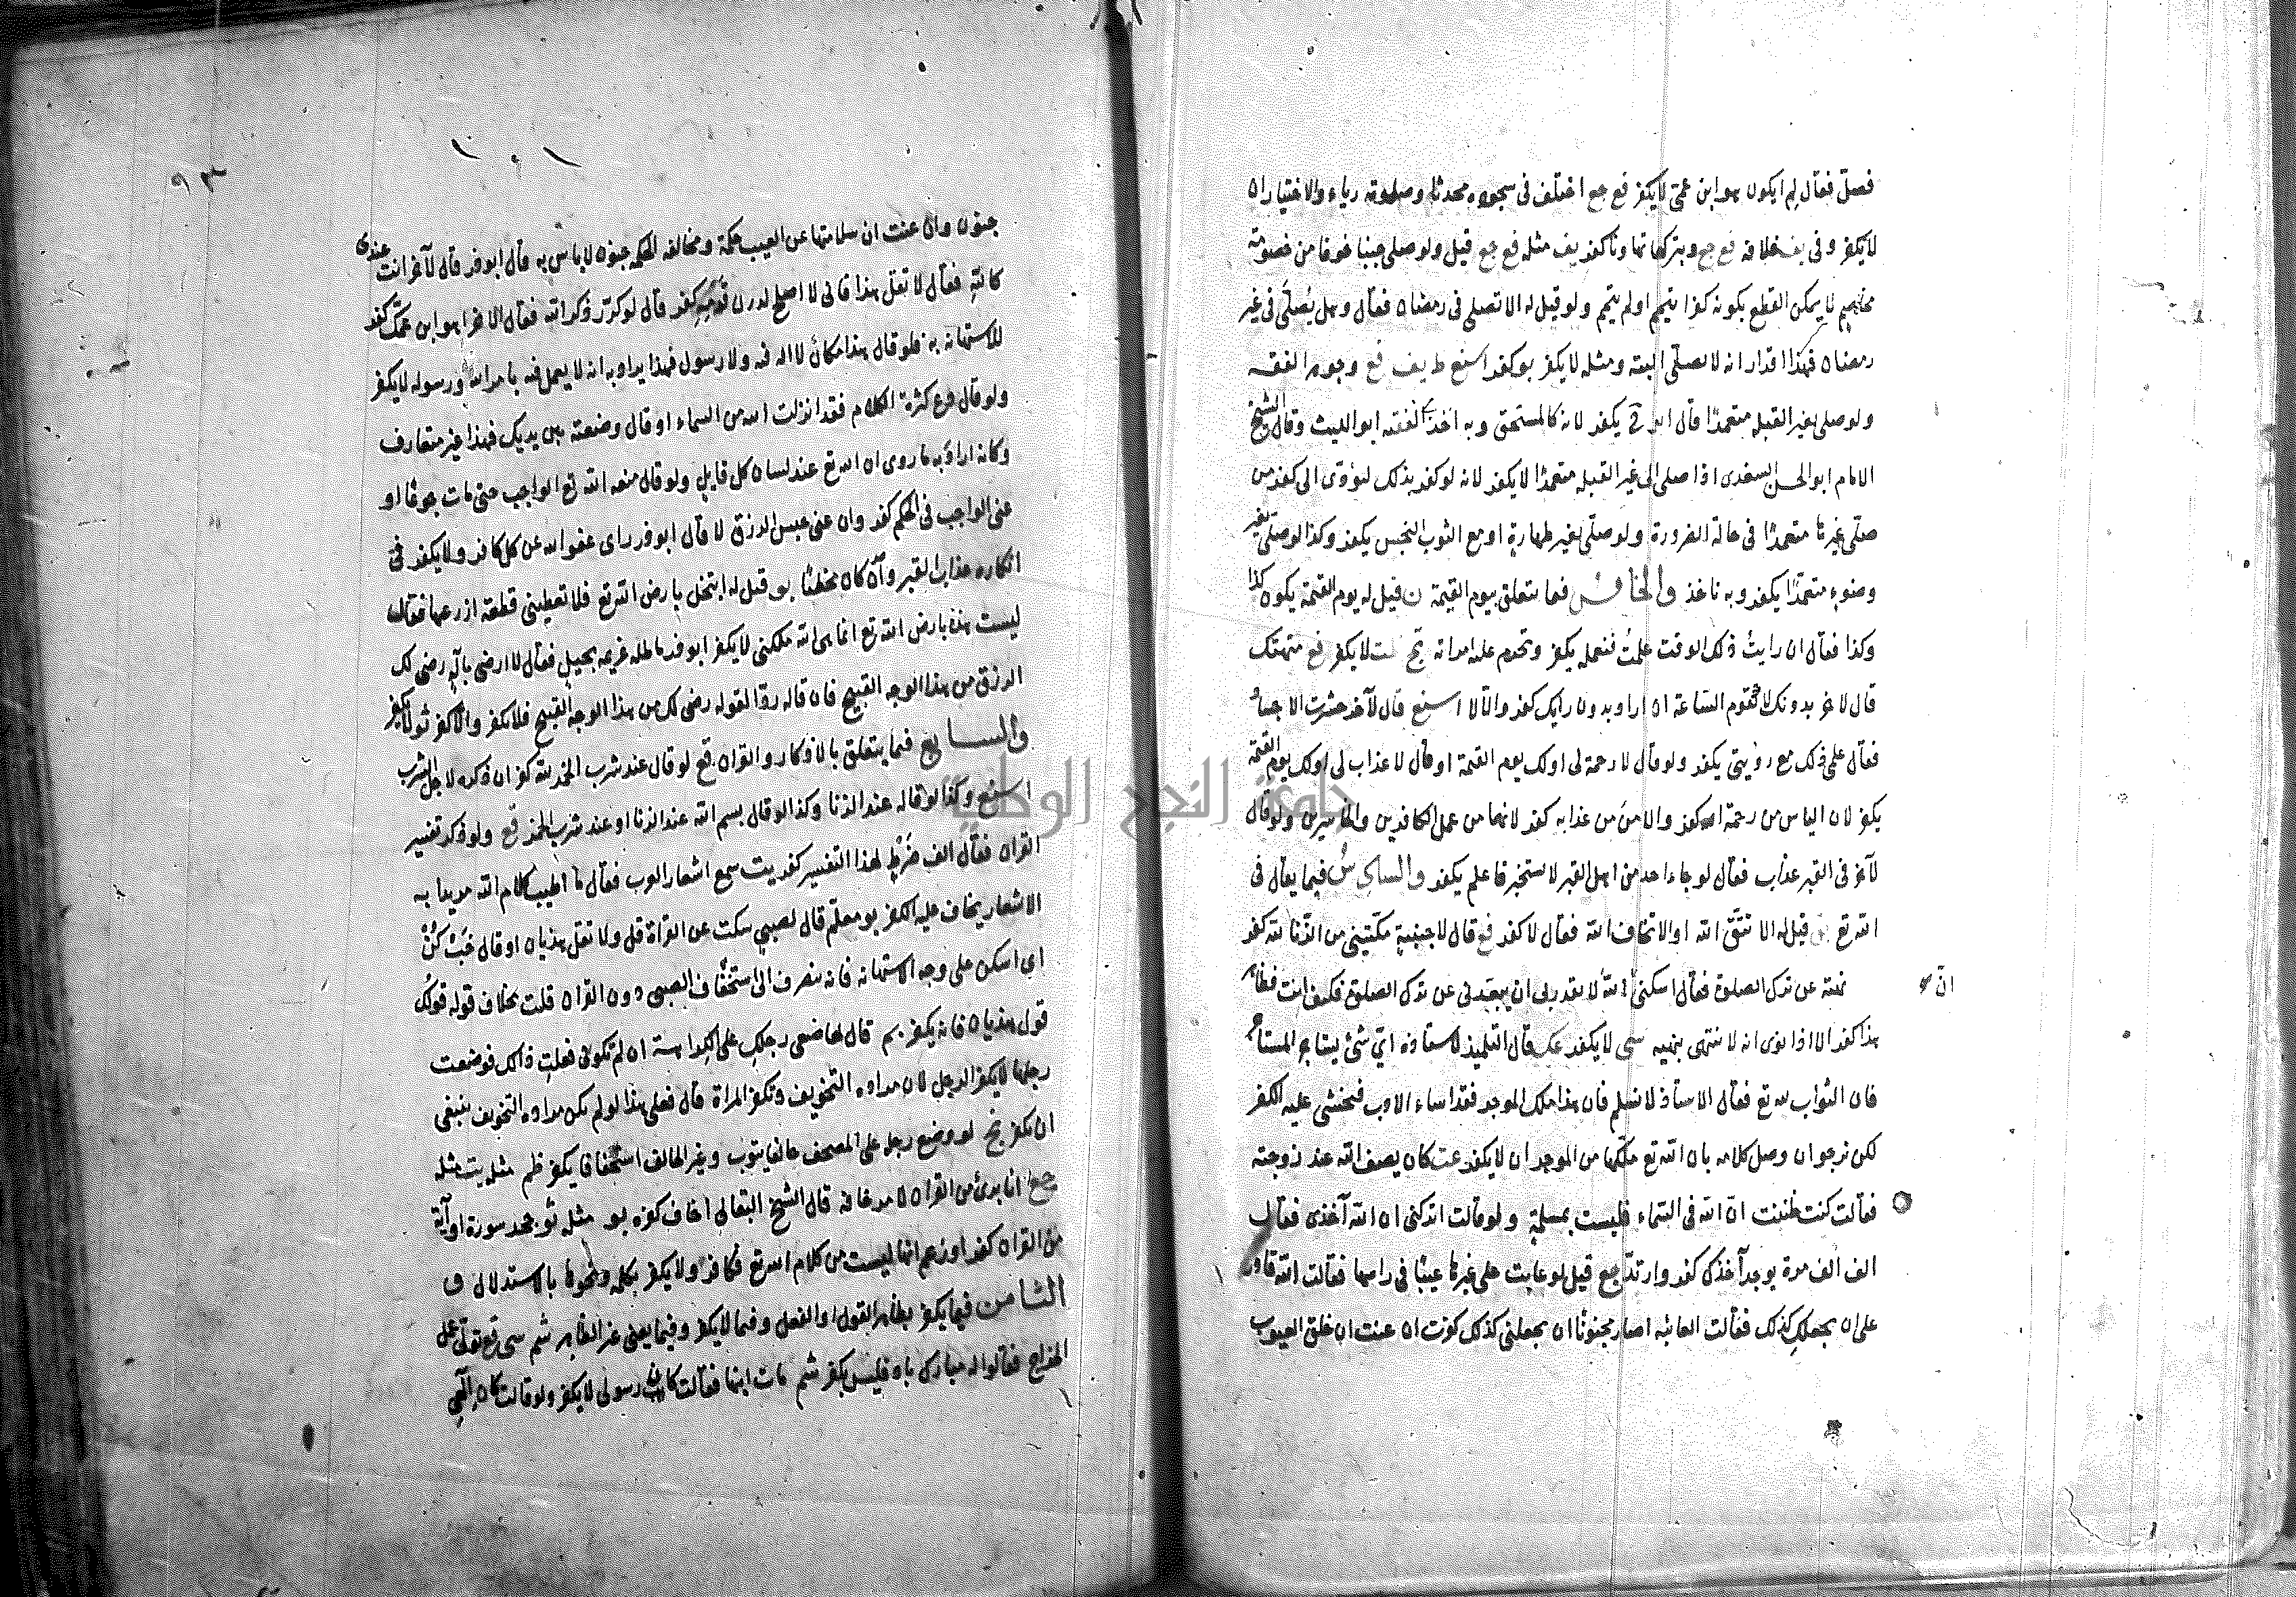 فصلّ فقال لِم ايكون هو ابن عمّي لا يكفر فع جع اختلف في سجوده محدثا وصلوته رياء والاختيار ان
لا يكفر وفي يف خلافه فع جع وبتركها تهاونا كفر يف مثله فع جع قيل ولو صلى جنبا خوفا من خصومة
لا يمكن القطع بكونه كفرا يتيمم او لم يتيمم ولو قيل له الا تصلي في رمضان فقال وهل يُصلّى في غير
رمضان فهذا اقرار انه لا يصلّي البتة ومثله لا يكفر بو كفر اسنع ط يف فع وجوه الفقه
ولو صلى لغير القبلة متعمدًا قال ابو ح يكفر لانه كالمستخف وبه اخذ الفقيه ابو الليث وقال الشيخ
الامام ابو الحسن السغدي اذا صلى الى غير القبلة متعمدًا لا يكفر لانه لو كفر بذلك لتؤدى الى كفر من
صلّى غيرها متعمدًا في حالة الضرورة ولو صلّى بغير طهارة او مع الثوب النجس يكفر وكذا لو صلى بغير
وضوء متعمدًا يكفر وبه ناخذ والخامس فيما يتعلق بيوم القيمة ن قيل له يوم القيمة يكون كذا
وكذا فقال ان رايتُ ذلك الوقت علمتُ فنعمله يكفر وتحرم عليه امراته لا يكفر فع
قال لاخر بدونك لا تقوم الساعة ان اراد بدون رايك كفر والا لا اسنع قال لآخر حشرت الاجساد
فقال علمي ذلك مع رؤيتي يكفر ولو قال لا رحمة لي او لك يوم القيمة او قال لا عذاب لي او لك يوم القيمة
يكفر لان الياس من رحمة الله كفر والامن من عذابه كفر لانهما من عمل الكافرين والخاسرين ولو قال
لآخر في القبر عذاب فقال لو جاء احد من اهل القبر لاستخبر فاعلم يكفر والسادس فيما يقال في
الله تع قيل له الا تتّقي الله او الا تخاف الله فقال لا كفر فع قال لاجنبية مكّنيني من الزنا لله كفر
نهته عن ترك الصلوة فقال اسكني ان الله لا يقدر لي ان يبعدني عن ترك الصلوة فكيف انت فظاهر
هذا كفر الا اذا نوى انه لا ينتهي بنهيه لا يكفر عك قال التلميذ لاستاذه ايّ شئ يستاجر المستاجر
فان الثواب لله تع فقال الاستاذ لا نسلم فان هذا ملك الموجر فقد اساء الادب فيخشى عليه الكفر
لكن نرجو ان وصل كلامه بان الله تع ملّكها من الموجر ان لا يكفر عت كان يصف الله عند زوجته
فقالت كنت ظننت انّ الله في السماء فليست بمسلمة ولو قالت اتركني ان الله آخذي فقال
الف الف مرة يوجد آخذكِ كفر وارتد جع قيل لو عابت على غيرها عيبًا في راسها فقالت الله قادر
على ان يجعلكِ كذلك فقالت العائبة اصار مجنونًا ان يجعلني كذلك كفرت ان عنت ان خلق العيوب
انّ
١٠١
٩٣
جنون وان عنت ان سلامتها عن العيب حكمة ومخالفه الحكمة جنون لا باس به قال ابو ذر قال لآخر انت عندي
كالله فقال لا تقل هذا فاني لا اصلح كفر قال لو كرّر ذكر الله فقال الاخر اهو ابن عمّك كفر
للاستهانه به فلو قال هذا مكان لا اله فيه ولا رسول فهذا يراد به انه لا يعمل فيه بامر الله ورسوله لا يكفر
ولو قال مع كثرة الكلام فقد انزلت الله من السماء او قال وضعته بين يديك فهذا غير متعارف
وكانه اراد به ما روى ان الله تع عند لسان كل قايل ولو قال منعه الله تع الواجب حتى مات جوعًا او
عنى الواجب في الحكم كفر وان عنى حبس الرزق لا قال ابو ذر راى عفو الله عن كل كافر ولا يكفر في
انكاره عذاب القبر وان كان مخطئًا بو قيل له ابتخل بارض الله تع فلا تعطيني قطعة ازرعها فقالت
ليست هذه بارض الله تع انما هي الله ملكني لا يكفر ابو ذر ماطله غريمه بحيل فقال لا ارضى بالله رضي لك
الرزق من هذا الوجه القبيح فان قاله ردًّا لقوله رضي لك من هذا الوجه القبيح فلا يكفر والا كفر ثو لا يكفر
والسابع فيما يتعلق بالاذكار والقران فع لو قال عند شرب الخمر لله كفر ان ذكره لاجل الشرب
اسنع وكذا لو قاله عند الزنا وكذا لو قال بسم الله عند الزنا او عند شرب الخمر فع ولو ذكر تفسير
القران فقال الف ضَرْطٍ لهذا التفسير كفر يت سمع اشعار العرب فقال ما اطيب كلام الله مريدا به
الاشعار يخاف عليه الكفر بو معلّم قال لصبي سكت عن القراة قل ولا تقل هذيان او قال
اي اسكن على وجه الاستهانه فانه ينصرف الى استخفاف الصبي دون القران قلت بخلاف قوله قولك
قول هذيان فانه يكفر بم قال لها ضعي رجلك على الكراسة ان لم تكوني فعلتِ ذلك فوضعت
رجلها لا يكفر الرجل لان مراده التخويف وتكفر المراة قال فعلى هذا لو لم يكن مراده التخويف ينبغي
ان يكفر لو وضع رجله على المصحف حالفا يتوب وغير الحالف استخفافا يكفر ظم مثله يت مثله
جع انا بري من القران لا مرعا فه قال الشيخ البقالي اخاف كفره بو مثله ثو جحد سورة او آية
من القران كفر او زعم انها ليست من كلام الله تع فكافر ولا يكفر بكله ونحوها بالاستدلال ف
الثامن فيما يكفر بظاهر القول او الفعل وفيما لا يكفر وفيما يعنى غير الظاهر شم سى فع تولّى عمل
الخراج فقالوا له مبارك باد فليس بكفر شم مات ابنها فقالت كان رسولي لا يكفر ولو قالت كان الهي